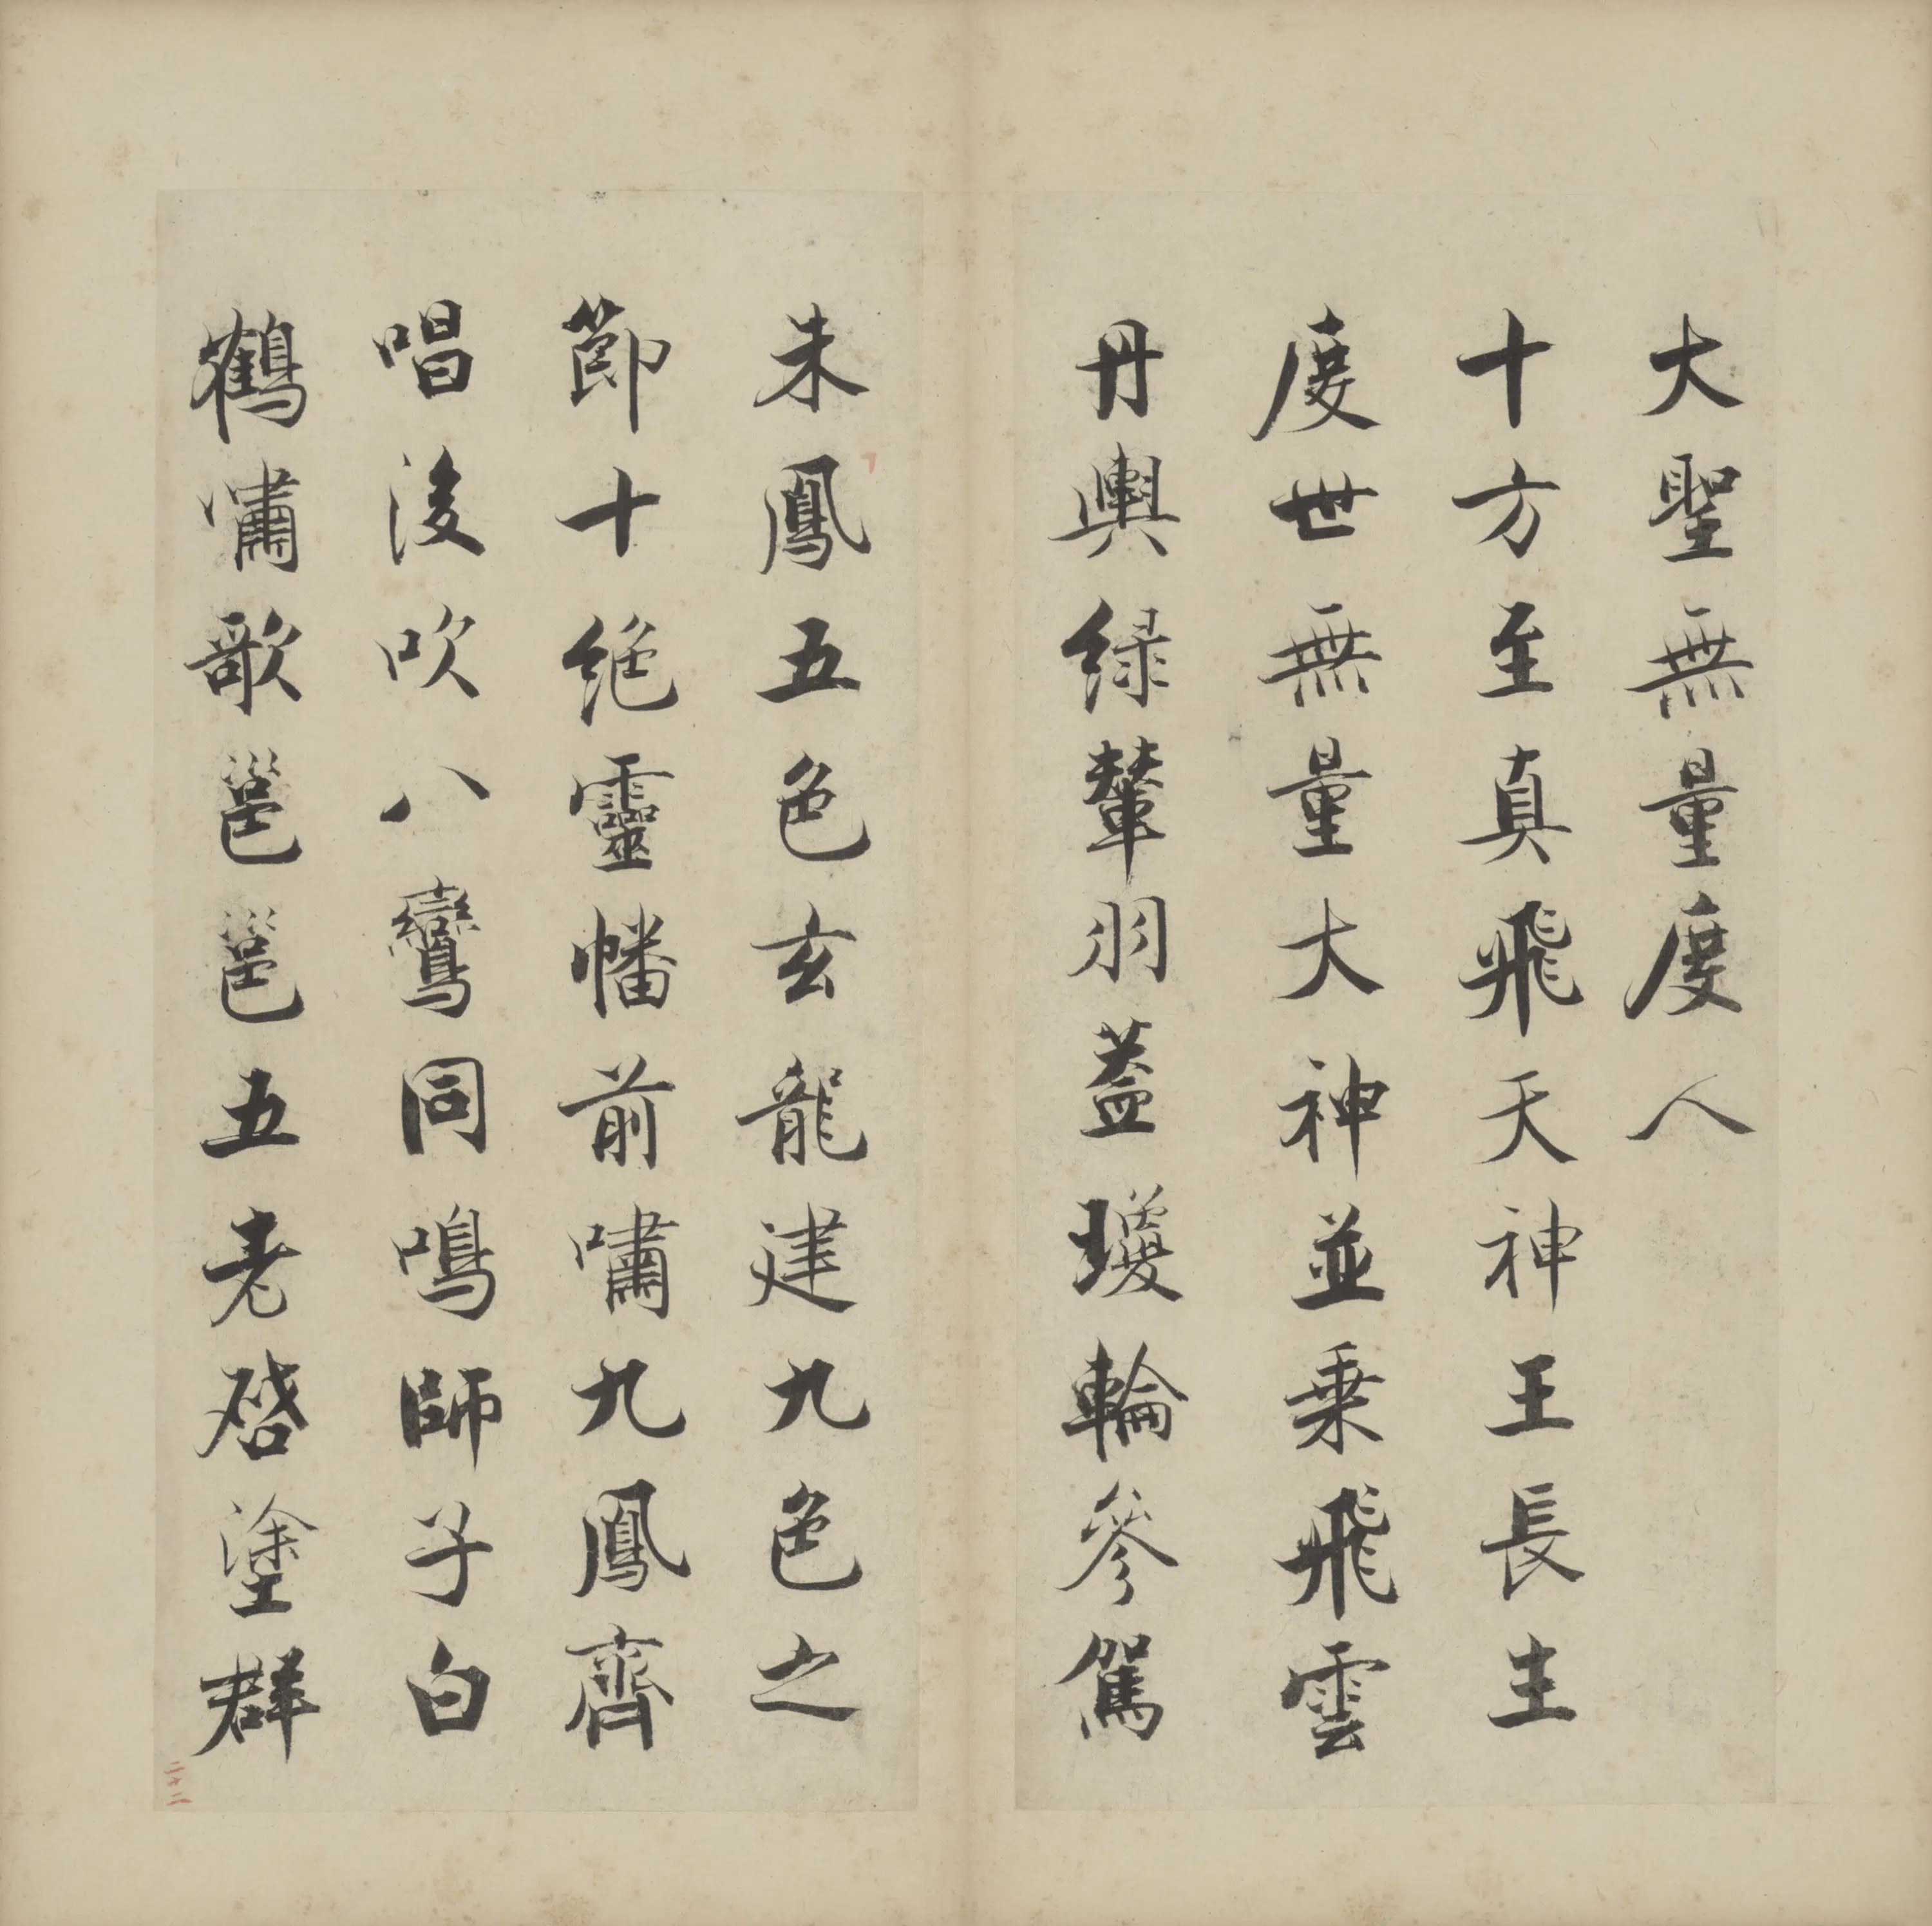 大聖無量度人
十方至真飛天神王長主
度世無量大神並乗飛雲
丹輿緑輦羽蓋瓊輪參駕
朱鳳五色玄龍建九色之
節十絶靈幡前嘯九鳳齊
唱後吹八鸞同鳴師子白
鶴嘯歌邕邕五老啓塗群
二十二